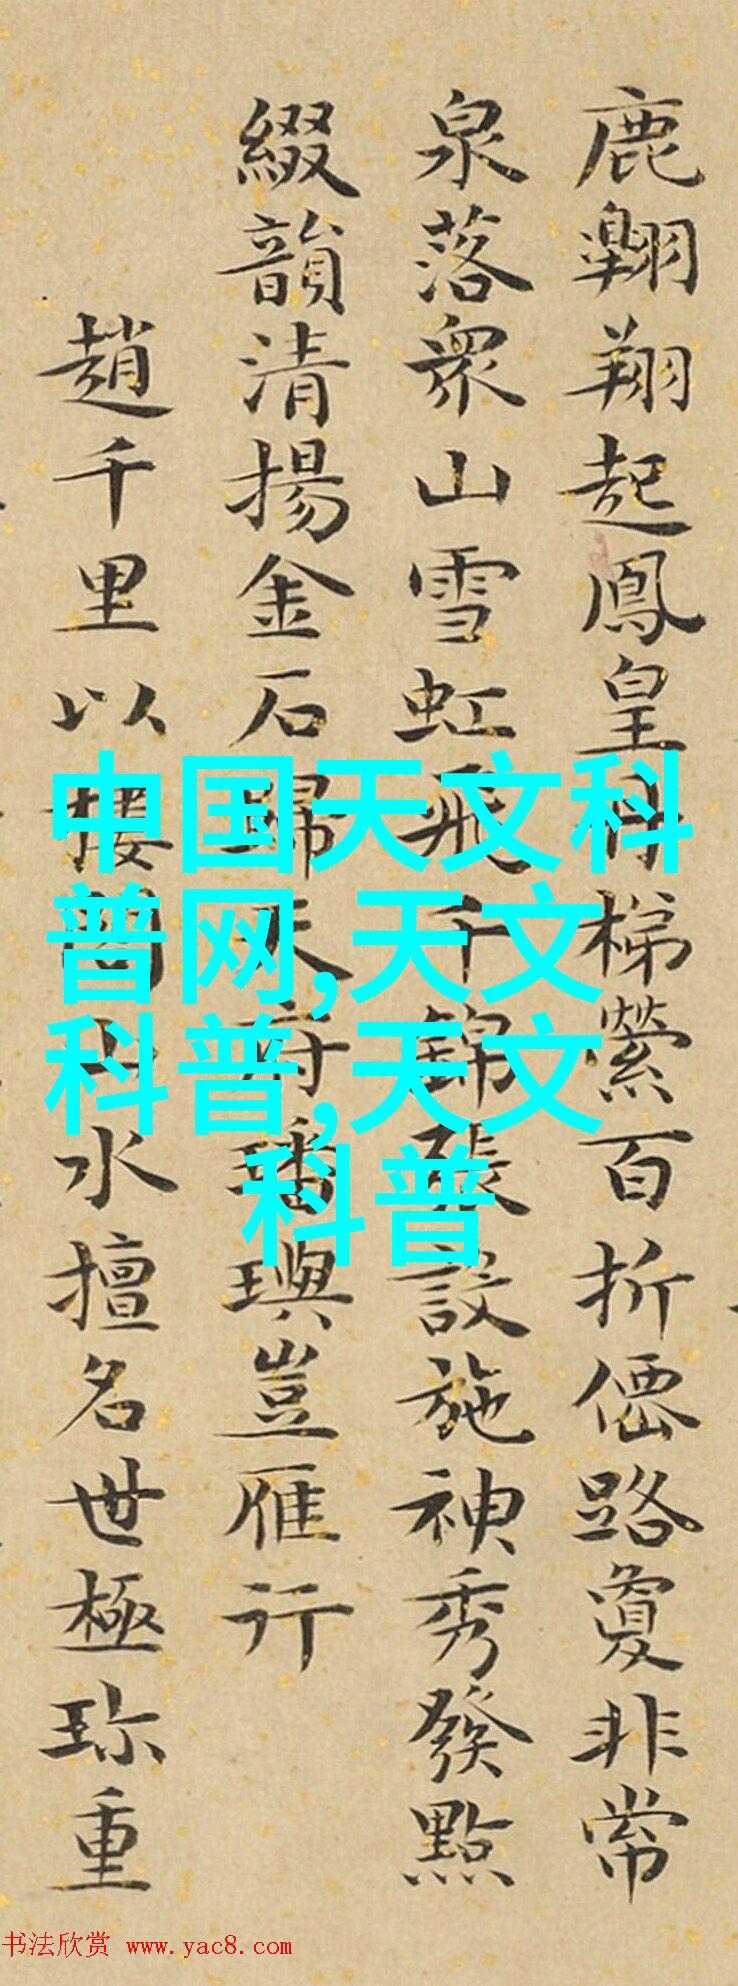 鹿翱翔起鳳皇丹梯縈百折僊路敻非常
泉落衆山雪虹飛千錦張設施神秀發點
綴韻清揚金石歸天府璠璵豈雁行
趙千里以樓閣山水擅名世極珎重
中国天文科
普网,天文
科普,天文
科普
书法欣赏 www.yac8.com